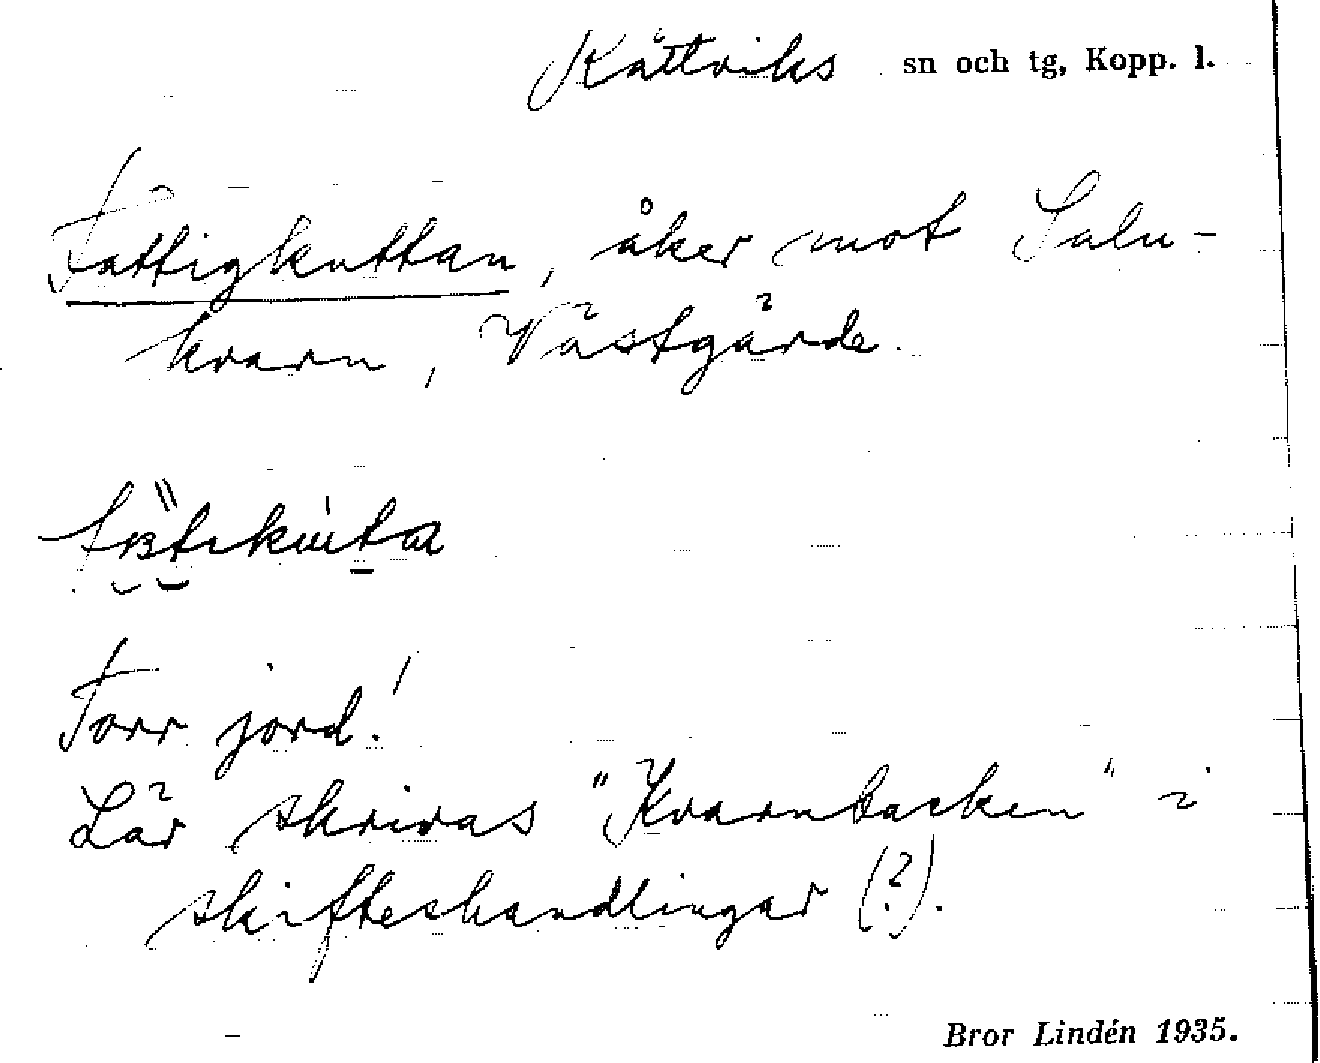 Rättviks sn och tg, Kopp. l.
Fattigkuttan, åker mot Salu-
kvarn, Västgärde.
Torr jord!
Lär skrivas "Kvarnbacken" i
skifteshandlingar (?).
Bror Lindén 1935.